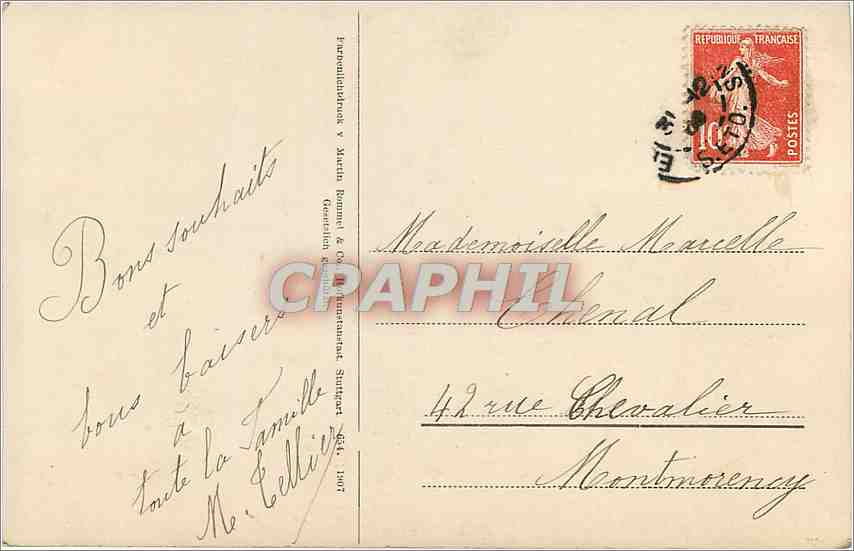 Bons souhaits
et
bons baisers
à
toute la Famille
Me. Tellier
Farbenlichtdruck v Martin Rommel & Co. Hofkunstanstalt, Stuttgart 654. 1907
Gesetzlich geschützt
REPUBLIQUE FRANÇAISE
10
POSTES
S. ET O.
Mademoiselle Marcelle
Chenal
42 rue Chevalier
Montmorency
CPAPHIL